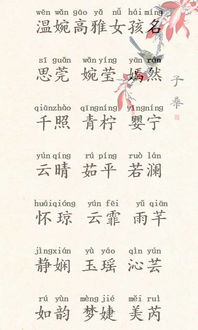 wēn wǎn gāo yǎ nǚ hái míng
温婉高雅女孩名
sī guǎn wǎn yíng yān rán
思莞 婉莹 嫣然
qiānzhào qīngníng yīngníng
千照 青柠 婴宁
yún qíng rú píng ruò lán
云晴 茹平 若澜
huáiqióng yún fēi yǔ qiān
怀琼 云霏 雨芊
jìngxián yù yáo qìn yún
静娴 玉瑶 沁芸
rú yùn mèng jié měi ruì
如韵 梦婕 美芮
子桑